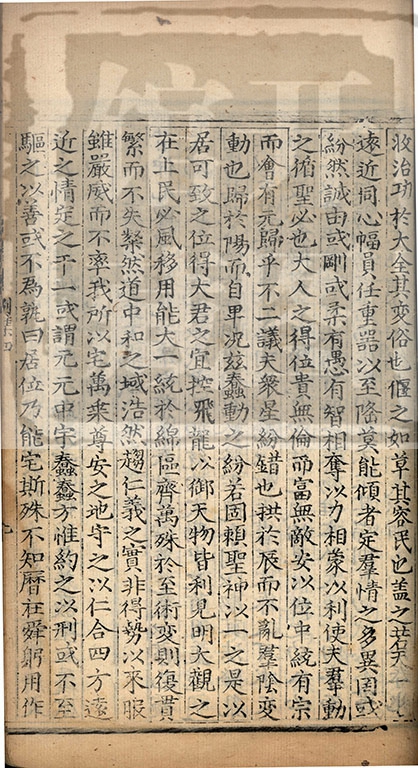 收治功於大全其變俗也偃之如草其容民也蓋之若天一
遠近同心幅員任重器以至隆莫能傾者定羣情之多異固或
紛然誠由或剛或柔有愚有智相奪以力相蒙以利使夫羣動
之循聖必也大人之得位貴無倫而富無敵安以位中統有宗
而會有元歸乎不二議夫衆星紛錯也拱於辰而不亂羣陰變
動也歸於陽而自卑况茲蠢動之紛若固賴聖神以一之是以
居可致之位得大君之宜控飛龍以御天物皆利見明大觀之
在上民必風移用能大一統於綿區齊萬殊於至術變則復貫
繁而不失粲然道中和之域浩然趨仁義之實非得勢以來服
雖嚴威而不率我所以宅萬乘尊安之地守之以仁合四方遠
近之情定之于一或謂元元中宗蠢蠢方惟約之以刑或不至
驅之以善或不為孰曰居位乃能宅斯殊不知曆在舜躬用作